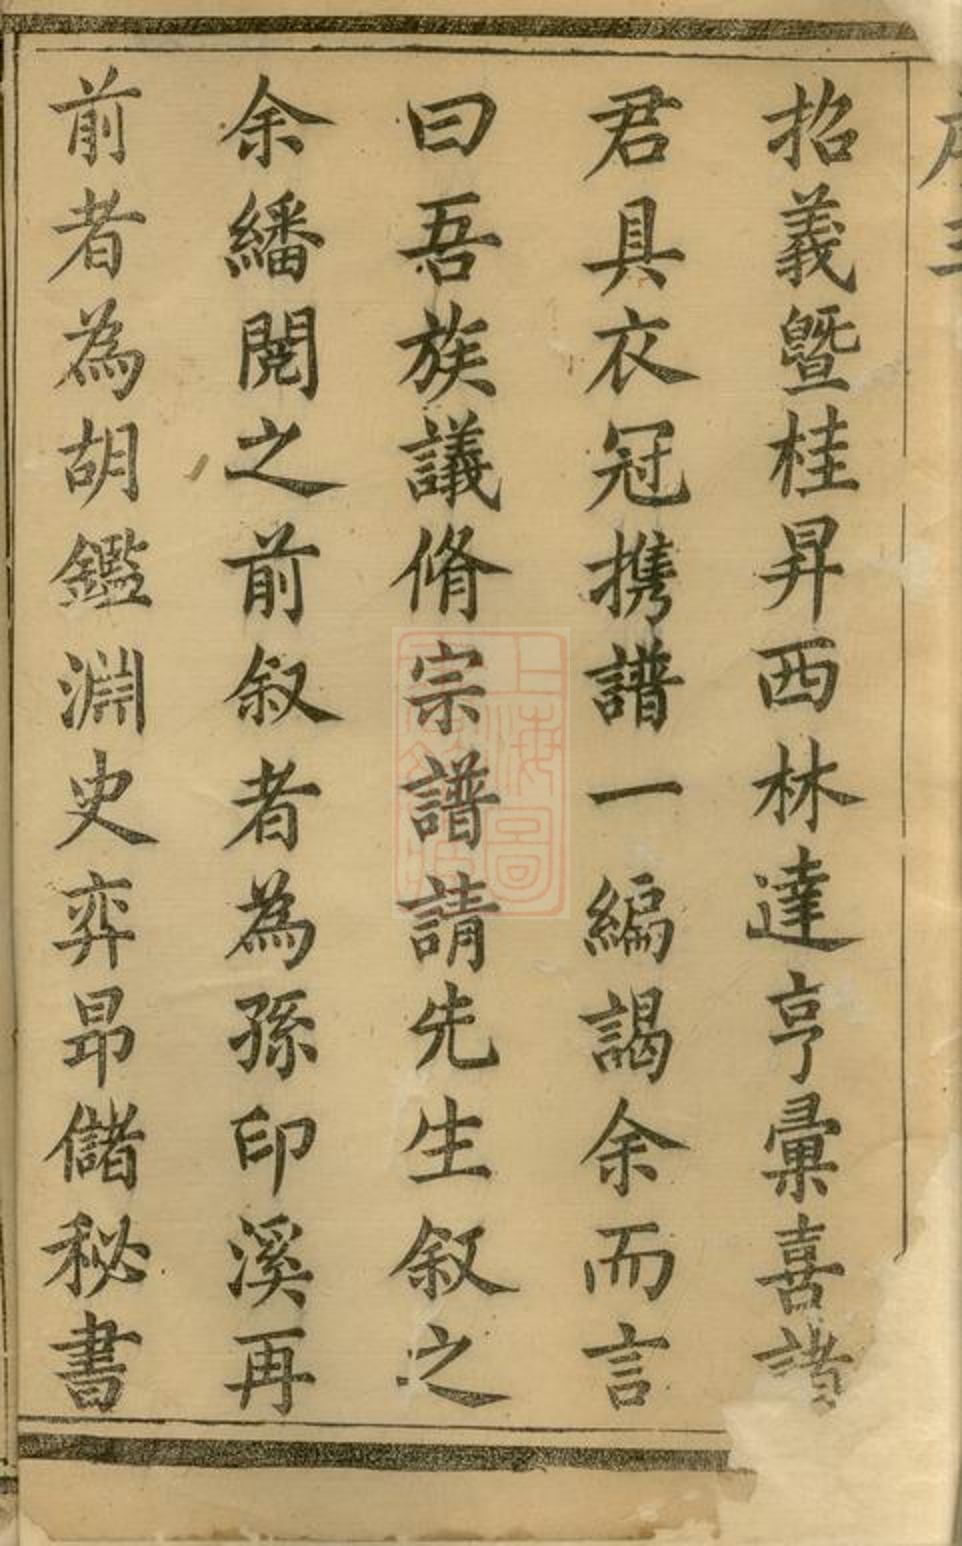 招義暨桂昇西林達亨彙喜諸
君具衣冠携譜一編謁余而言
曰吾族議脩宗譜請先生叙之
余繙閱之前叙者為孫印溪再
前者為胡鑑淵史弈昻儲秘書
上海圖